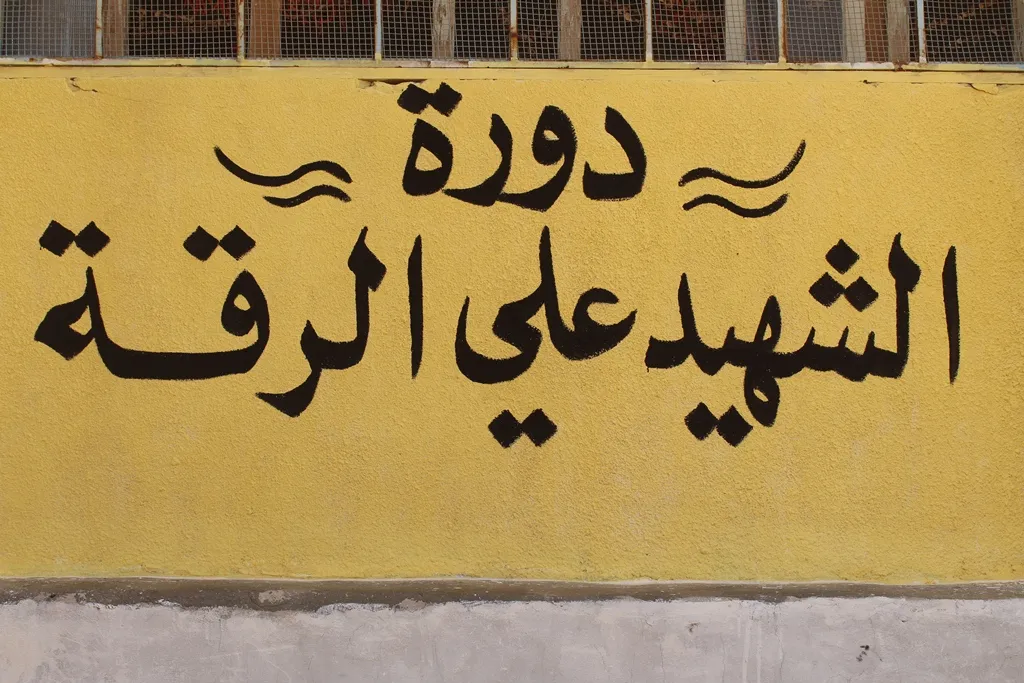 دورة
الشهيد علي الرقة